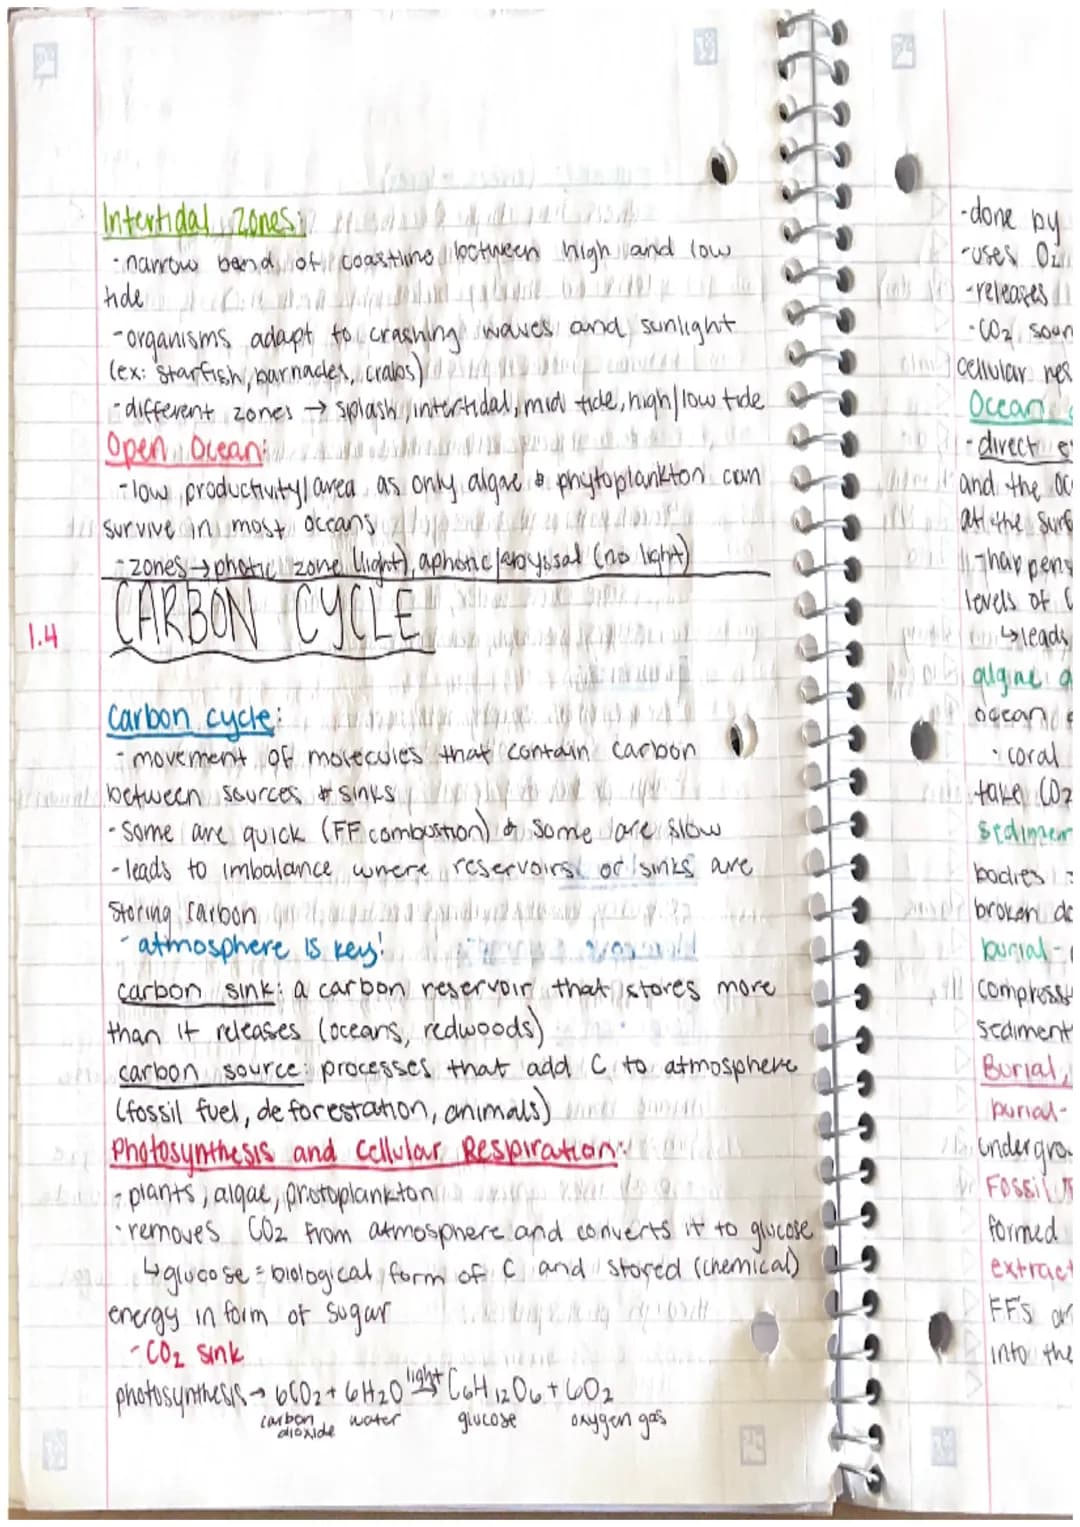 Intertidal Zones:
- narrow band of coastline between high and low
tide
- organisms adapt to crashing waves and sunlight
(ex: starfish, barnacles, crabs)
- different zones → splash, intertidal, mid tide, high/low tide
Open Ocean:
- low productivity/area as only algae & phytoplankton can
survive in most oceans
- zones → photic zone (light), aphotic/abyssal (no light)
1.4 CARBON CYCLE
Carbon cycle:
- movement of molecules that contain carbon
between sources & sinks
- some are quick (FF combustion) & some are slow
- leads to imbalance where reservoirs or sinks are
storing carbon
- atmosphere is key!
carbon sink: a carbon reservoir that stores more
than it releases (oceans, redwoods)
carbon source: processes that add C to atmosphere
(fossil fuel, deforestation, animals)
Photosynthesis and Cellular Respiration:
- plants, algae, protoplankton
- removes CO2 from atmosphere and converts it to glucose
↳ glucose = biological form of C and stored (chemical)
energy in form of sugar
- CO2 sink
photosynthesis → 6CO2 + 6H2O light→ C6H12O6 + 6O2
carbon dioxide water glucose oxygen gas
- done by
- uses O2
- releases
- CO2 sour
cellular res
Ocean
- direct e
and the oc
at the surf
- happens
levels of C
↳ leads
algae a
ocean
- coral
take CO2
sedimen
bodies
broken do
burial -
compress
sediment
Burial,
burial -
undergro
Fossil F
formed
extract
FF's ar
into the